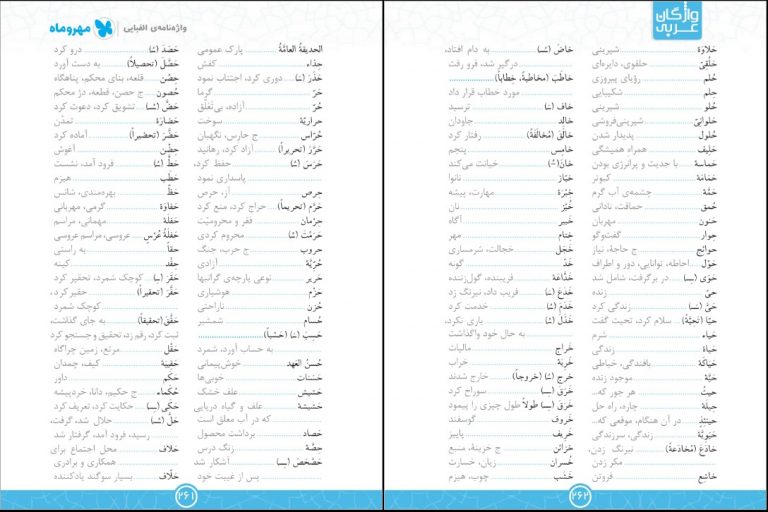 واژه‌نامه‌ی الفبایی مهروماه
الحديقةُ العامَّةُ پارک عمومی
حِذاء کفش
حَذَّرَ (ـَـ) دوری کرد، اجتناب نمود
حَرّ گرما
حُرّ آزاده، بی‌تَعَلُّق
حرارَة سوخت
حُرّاس ج حارس، نگهبان
حَرَّرَ (تحریراً) آزاد کرد، رهانید
حَرَسَ (ـُـ) حفظ کرد،
پاسداری نمود
حِرص آز، حرص
حَرَّم (تحریماً) حراج کرد، منع کرد
حِرْمان فقر و محرومیّت
حَرَمَتْ (ـُـ) محروم کردی
حروب ج حرب، جنگ
حُرِّيَّة آزادی
حَرير نوعی پارچه‌ی گرانبها
حَزْم هوشیاری
حُزن ناراحتی
حُسام شمشیر
حَسِبَ (ـَـ) (حَسْباً)
به حساب آورد، شمرد
حُسنُ العَهد خوش‌پیمانی
حَسَنات خوبی‌ها
حَشيش علف خشک
حَشيشَة علف و گیاه دریایی
که در آب معلق است
حَصاد برداشت محصول
حِصَّة زنگ درس
حَصْحَصَ (ـِـ) آشکار شد
پس از غیبت خود
حَصَدَ (ـُـ) درو کرد
حَصَّلَ (تحصیلاً) به دست آورد
حِصْن قلعه، بنای محکم، پناهگاه
حُصون ج حصن، قطعه، دژ محکم
حَضَّ (ـُـ) تشویق کرد، دعوت کرد
حَضارَة تمدّن
حَضَّرَ (تحضیراً) آماده کرد
حِضْن آغوش
حَطَّ (ـُـ) فرود آمد، نشست
حَطَب هیزم
حَظّ بهره‌مندی، شانس
حَفاوَة گرمی، مهربانی
حَفلَة مهمانی، مراسم
حَفْلَةُ عُرْسٍ عروسی، مراسم عروسی
حقاً به راستی
حِقْد کینه
حَقَرَ (ـِـ) کوچک شمرد، تحقیر کرد
حَقَّرَ (تحقیراً) حقیر کرد،
کوچک شمرد
حَقَّقَ (تحقیقاً) به جای گذاشت،
ثبت کرد، رقم زد، تحقیق و جستجو کرد
حَقْل مرتع، زمین چراگاه
حَقیبَة کیف، چمدان
حَکَم داور
حُکَماء ج حکیم، دانا، خردپیشه
حَکی (ـِـ) حکایت کرد، تعریف کرد
حَلَّ (ـُـ) حلال شد، گرفت،
رسید، فرود آمد، گرفتار شد
حَلاف محل اجتماع برای
همکاری و برادری
حَلّاف بسیار سوگند یادکننده
۲۶۱
واژگان عربی
حَلاوَة شیرینی
حَلْقیّ حلقوی، دایره‌ای
حُلم رؤیای پیروزی
حِلم شکیبایی
حُلو شیرینی
حَلوانیّ شیرینی‌فروشی
حُلول پدیدار شدن
حَلیف همراه همیشگی
حَماسة با جدیت و پرانرژی بودن
حَمامَة کبوتر
حَمَّة چشمه‌ی آب گرم
حُمق حماقت، نادانی
حَنون مهربان
حِوار گفت‌وگو
حوائِج ج حاجة، نیاز
حَوْل احاطه، توانایی، دور و اطراف
حَوَی (ـِـ) در برگرفت، شامل شد
حیّ زنده
حَیَّ (ـَـ) زندگی کرد
حَیّا (تَحیَّةً) سلام کرد، تحیت گفت
حَیاء شرم
حَیاة زندگی
حیاکَة بافندگی، خیاطی
حَیَّة موجود زنده
حیثُ هر جور که...
حیلَة چاره، راه حل
حینَئِذٍ در آن هنگام، موقعی که...
حَیَویَّة زندگی، سرزندگی
خادَعَ (مُخادَعةً) نیرنگ زدن،
مکر زدن
خاشِع فروتن
خاضَ (ـُـ) به دام افتاد،
درگیر شد، فرو رفت
خاطَبَ (مُخاطَبةً، خِطاباً)
مورد خطاب قرار داد
خافَ (ـَـ) ترسید
خالِد جاودان
خالَقَ (مُخالَقَةً) رفتار کرد
خامِس پنجم
خانَ (ـُـ) خیانت می‌کند
خَبّاز نانوا
خِبْرَة مهارت، پیشه
خُبْز نان
خَبیر آگاه
خِتام مهر
خَجَل خجالت، شرمساری
خَدّ گونه
خَدّاعَة فریبنده، گول‌زننده
خَدَعَ (ـَـ) فریب داد، نیرنگ زد
خَدَمَ (ـُـ) خدمت کرد
خَذَلَ (ـُـ) یاری نکرد،
به حال خود واگذاشت
خَراج مالیات
خَرِبَة خراب
خَرج (ـُـ) (خروجاً) خارج شدند
خَرَق (ـِـ) سوراخ کرد
خَرَقَ (ـِـ) طولاً طول چیزی را پیمود
خَروف گوسفند
خَریف پاییز
خَزائن ج خزینة، منبع
خُسران زیان، خسارت
خَشَب چوب، هیزم
۲۶۲